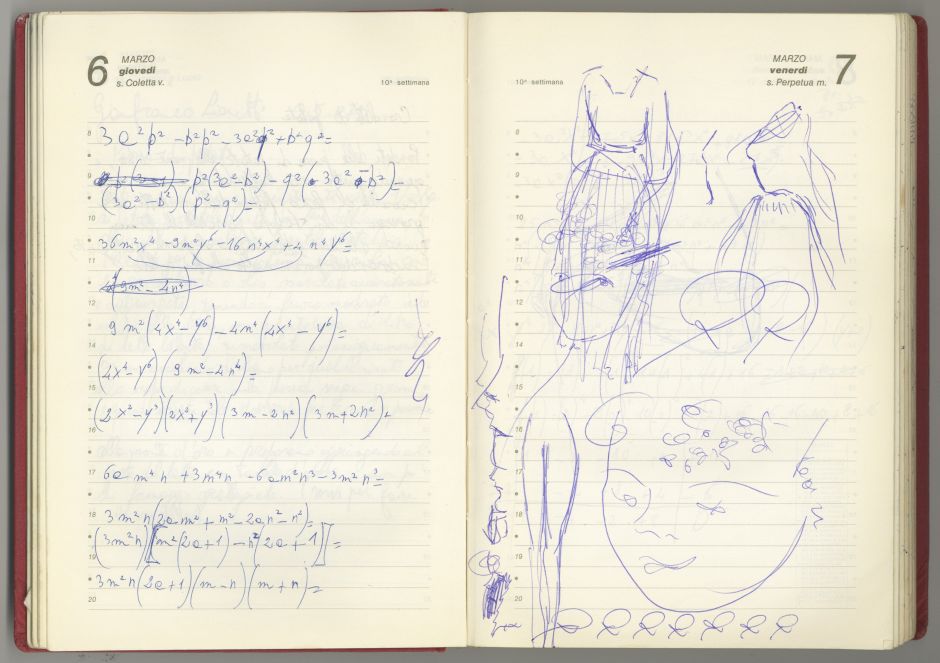 6 MARZO
giovedì
s. Coletta v.
10ª settimana
8
3a²p² - b²p² - 3a²q² + b²q² =
9
p²(3a²-b²) - q²(3a² - b²) =
(3a² - b²)(p² - q²) =
10
36m²x⁴ - 9m²y⁶ - 16n⁴x⁴ + 4n⁴y⁶ =
11
(9m² - 4n⁴)
12
9m²(4x⁴ - y⁶) - 4n⁴(4x⁴ - y⁶) =
14
(4x⁴ - y⁶)(9m² - 4n⁴) =
15
(2x² - y³)(2x² + y³)(3m - 2n²)(3m + 2n²)
16
17
6am⁴n + 3m⁴n - 6am²n³ - 3m²n³ =
18
3m²n(2am² + m² - 2an² - n²) =
(3m²n)[m²(2a+1) - n²(2a+1)] =
19
3m²n(2a+1)(m-n)(m+n) =
20
10ª settimana
MARZO 7
venerdì
s. Perpetua m.
8
9
10
11
12
14
15
16
17
18
19
20